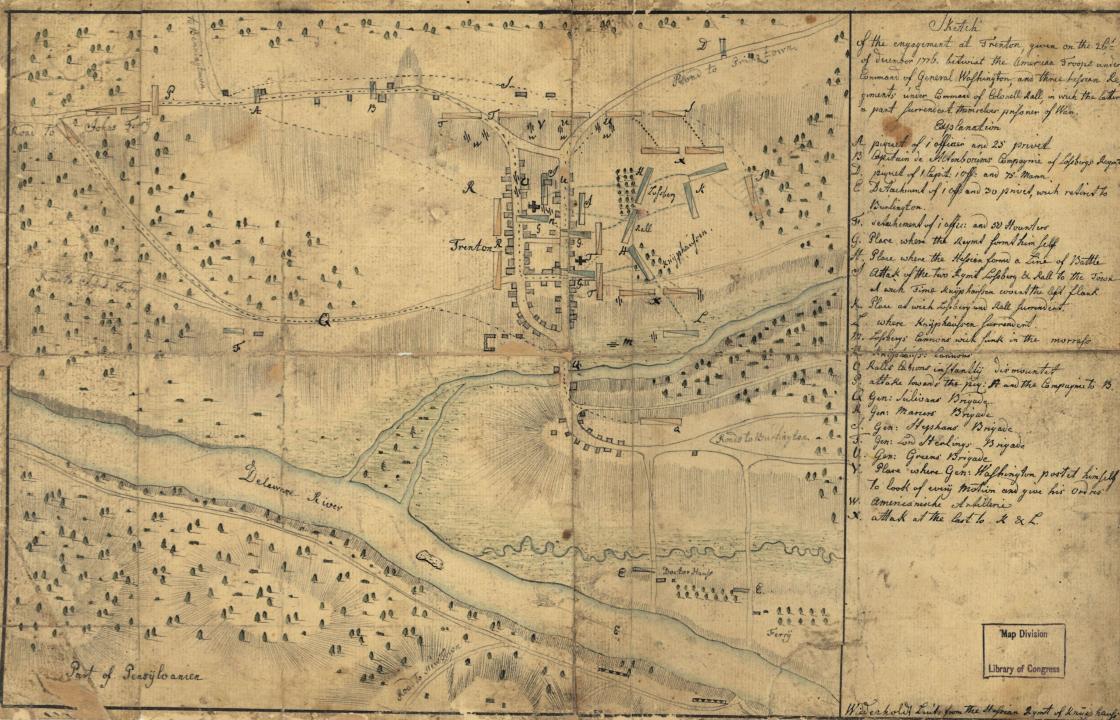 Sketch
of the engagement at Trenton, given on the 26th
of december 1776. betwixt the American Troops under
Command of General Washington, and three hessian Re-
giments under Command of Colonell Rall, in wich the latter
a part surrendert themselves prisoner of War.
Explanation
A. picquet of 1 officier and 25 privet
B. Captain de Altenbocums Compagnie of Losbergs Regmt
D. piquet of 1 Capit 1 offc and 75 Mann.
E. Detachment of 1 off and 30 privet, wich retiret to
Burlington.
F. detachement of 1 offic and 50 Hounters
G. Place where the Regmt form'd him self
H. Place where the Hessian form'd a Line of Battle
J. Attak of the two Regmt Losberg & Rall to the Town
at wich Time Knÿphausen covert the left flank
K. Place at wich Losberg and Rall surrendert.
L. where Knÿphausen surrendert
M. Losbergs Cannons wich sunk in the morrass
N. Knÿphauss: cannons
O. Ralls Canons instantly dismountet
P. attake towards the piq: A and the Compagnie to B.
Q. Gen: Sulivans Brigade
R. Gen: Marcers Brigade
S. Gen: Stephans Brigade
T. Gen: Lord Sterlings Brigade
U. Gen: Greens Brigade
V. Place where Gen: Washington postet himself
to look of every Motion and give his Orders
W. Americanische Artillerie
X. attak at the last to K & L.
Map Division
Library of Congress
Wiederholdt Lieut: from the Hessian Regmt of Knÿphausen
D
Road to Princetown
P
A
B
S
Road to
Johns Ferry
T
V
U
R
Losberg
K
Rall
Trenton
Knÿphausen
H
G
X
L
M
Q
F
Road to Burlington
Delaware River
E
Doctor Hauss
E
Ferry
Part of Pensÿlvanien
Road to New Town